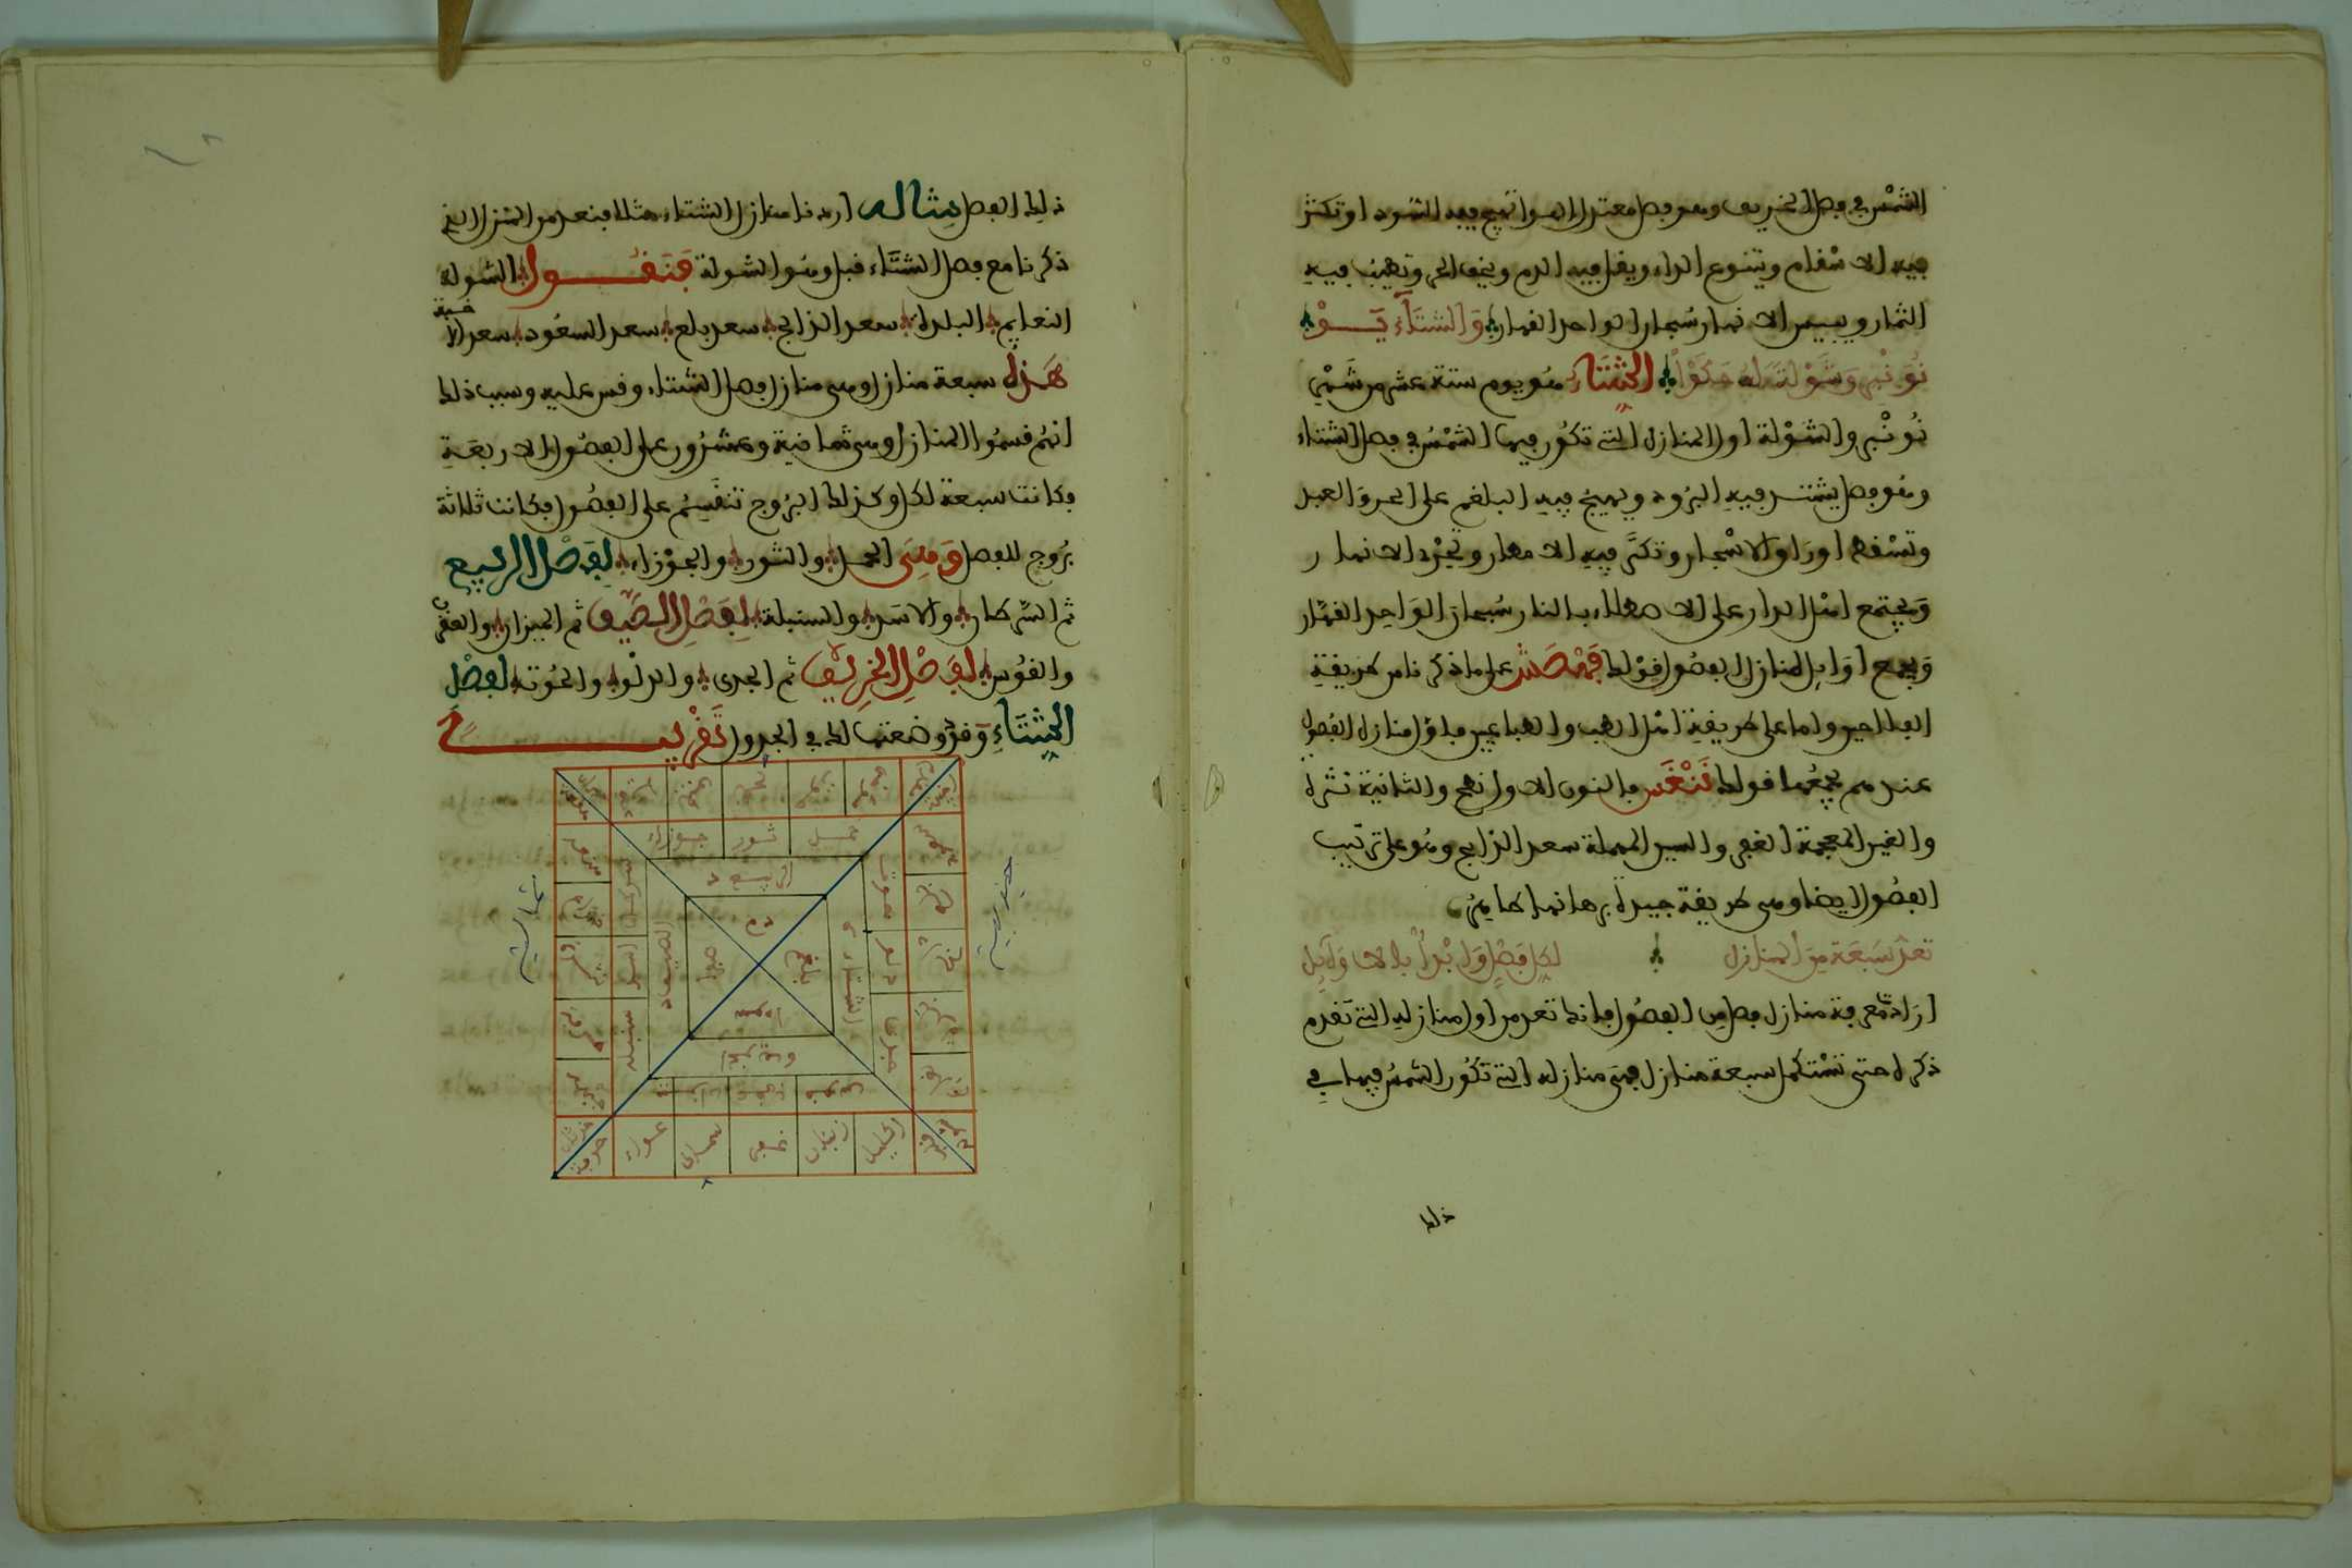 الشمس في فصل الخريف وهو فصل معتدل الهوا تهيج فيه السودا وتكثر
فيه الاسقام ويتنوع الداء ويقل فيه الدم ويخف الحر وتطيب فيه
الثمار وييبس الانهار سبحان الواحد القهار وَالشتاء يَــوْ
نُوَنْبِر وَشَوْلَة له حَكَوْا الشتاء هو يوم ستة عشر من شهر
نُونْبر والشَوْلة اول المنازل التي تكون فيها الشمس في فصل الشتاء
وهو فصل يشتد فيه البرود ويهيج فيه البلغم على الحر والعبد
وتسْقط اوراق الاشجار وتكثر فيه الامطار وتجْرد الانهار
وَيجتمع اهل الدار على الاصطلاء بالنار سبحان الوَاحد القهار
وَيجمع اوَايل المنازل الفصول قوْلك فمْصَش على ما ذكرنا من طريقة
الفلاحين واما على طريقة اهل الطب والطبايعيين فاول منازل الفصول
عندهم يجمعها قولك نَنْغَس فالنون الاولى نطح والثانية نثرة
والغين المعجمة الغفر والسين المهملة سعد الذابح وهو على ترتيب
الفصول ايضا وهي طريقة جيدة برهانها ظاهر
تعدّ سَبعَة مِن المنازل لكل فصْلٍ وَابْدأ بالاوَايل
اذا اردت معرفة منازل فصل من الفصول فانك تعد من اول منازله التي تقدم
ذكره حتى تسْتكمل سبعة منازل فهي منازله التي تكون الشمس فيها في
ذلك
ذلك الفصل مِثاله اردنا منازل الشتاء مثلا فنعد من المنزل الذي
ذكرنا مع فصل الشتَاء قبل وهو الشولة فنقـــول الشولة
النعايم البلدة سعد الذابح سعد بلع سعد السعود سعد الاخبية
هَذه سبعة منازل وهي منازل فصل الشتاء وقس عليه وسبب ذلك
انهم قسمُوا المنازل وهي ثمانية وعشرُون على الفصُول الاربعَة
فكانت سبعة لكل وكذلك البرُوج تنقسِمُ على الفصُول فكانت ثلاثة
برُوج للفصل وَهِيَ الحمل والثور والجوْزاء لفَصْل الربيع
ثم السرطان والاسد والسنبلة لفصْل الصَّيف ثم الميزان والعقرب
والقوْس لفَصْل الخرِيف ثم الجدى والدلْو والحُوت لفصْل
الشتَاءِ وَقد وضعتها لك في الجدول تَقْريبـــا
حمل ثور جوزاء
الربيع
سرطان الاسد سنبلة
الصيف
دم
صفرا
بلغم
سودا
الشتاء
حوت دلو جدى
قوس عقرب ميزان
جنوبية
شمالية